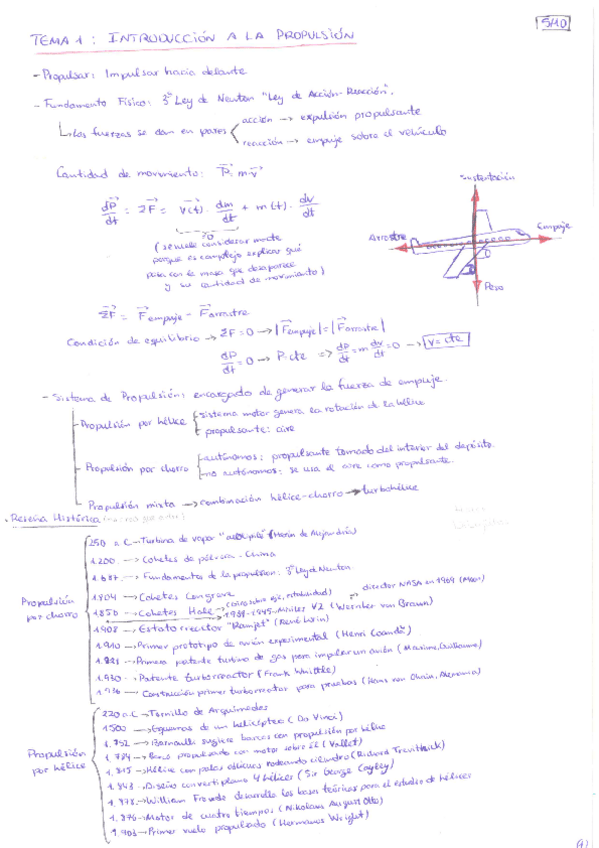 SHO
TEMA 1: INTRODUCCIÓN A LA PROPULSIÓN
- Propulsar: Impulsar hacia delante
- Fundamento Físico: 3ª Ley de Newton "Ley de Acción-Reacción".
Las fuerzas se dan en pares
acción → expulsión propulsante
reacción → empuje sobre el vehículo
Cantidad de movimiento: P = m·v
dP/dt = ΣF = v(t) · dm/dt + m(t) · dv/dt
(se suele considerar
porque es complejo explicar qué
pasa con la masa que desaparece
y su cantidad de movimiento)
Sustentación
Arrastre
Empuje
Peso
ΣF = F empuje - F arrastre
Condición de equilibrio → ΣF = 0 → |F empuje| = |F arrastre|
dP/dt = 0 → P = cte ⇒ dP/dt = m dv/dt = 0 → v = cte
- Sistema de Propulsión: encargado de generar la fuerza de empuje.
- Propulsión por hélice
sistema motor genera la rotación de la hélice
propulsante: aire
- Propulsión por chorro
autónomos: propulsante tomado del interior del depósito.
no autónomos: se usa el aire como propulsante.
Propulsión mixta → combinación hélice-chorro → turbohélice
· Reseña Histórica
Propulsión por chorro
250 a.C → Turbina de vapor (Herón de Alejandría)
1.200 → Cohetes de pólvora - China
1.687 → Fundamentos de la propulsión: 3ª Ley de Newton
1.804 → Cohetes Congreve
1.850 → Cohetes Hale (Giro sobre eje, estabilidad)
→ 1938-1945 - Misiles V2 (Wernher von Braun)
director NASA en 1969
1.908 → Estatorreactor "Ramjet" (René Lorin)
1.910 → Primer prototipo de avión experimental (Henri Coandă)
1.921 → Primera patente turbina de gas para impulsar un avión (Maxime Guillaume)
1.930 → Patente turborreactor (Frank Whittle)
1.936 → Construcción primer turborreactor para pruebas (Hans von Ohain, Alemania)
Propulsión por hélice
220 a.C → Tornillo de Arquímedes
1500 → Esquemas de un helicóptero (Da Vinci)
1.752 → Bernoulli sugiere barcos con propulsión por hélice
1.784 → Barco propulsado con motor sobre (Vallet)
1.815 → Hélice con palas oblicuas rodeando cilindro (Richard Trevithick)
1.843 → Diseño convertiplano 4 hélices (Sir George Cayley)
1.878 → William Froude desarrolla las bases teóricas para el estudio de hélices
1.876 → Motor de cuatro tiempos (Nikolaus August Otto)
1.903 → Primer vuelo propulsado (Hermanos Wright)
(1)